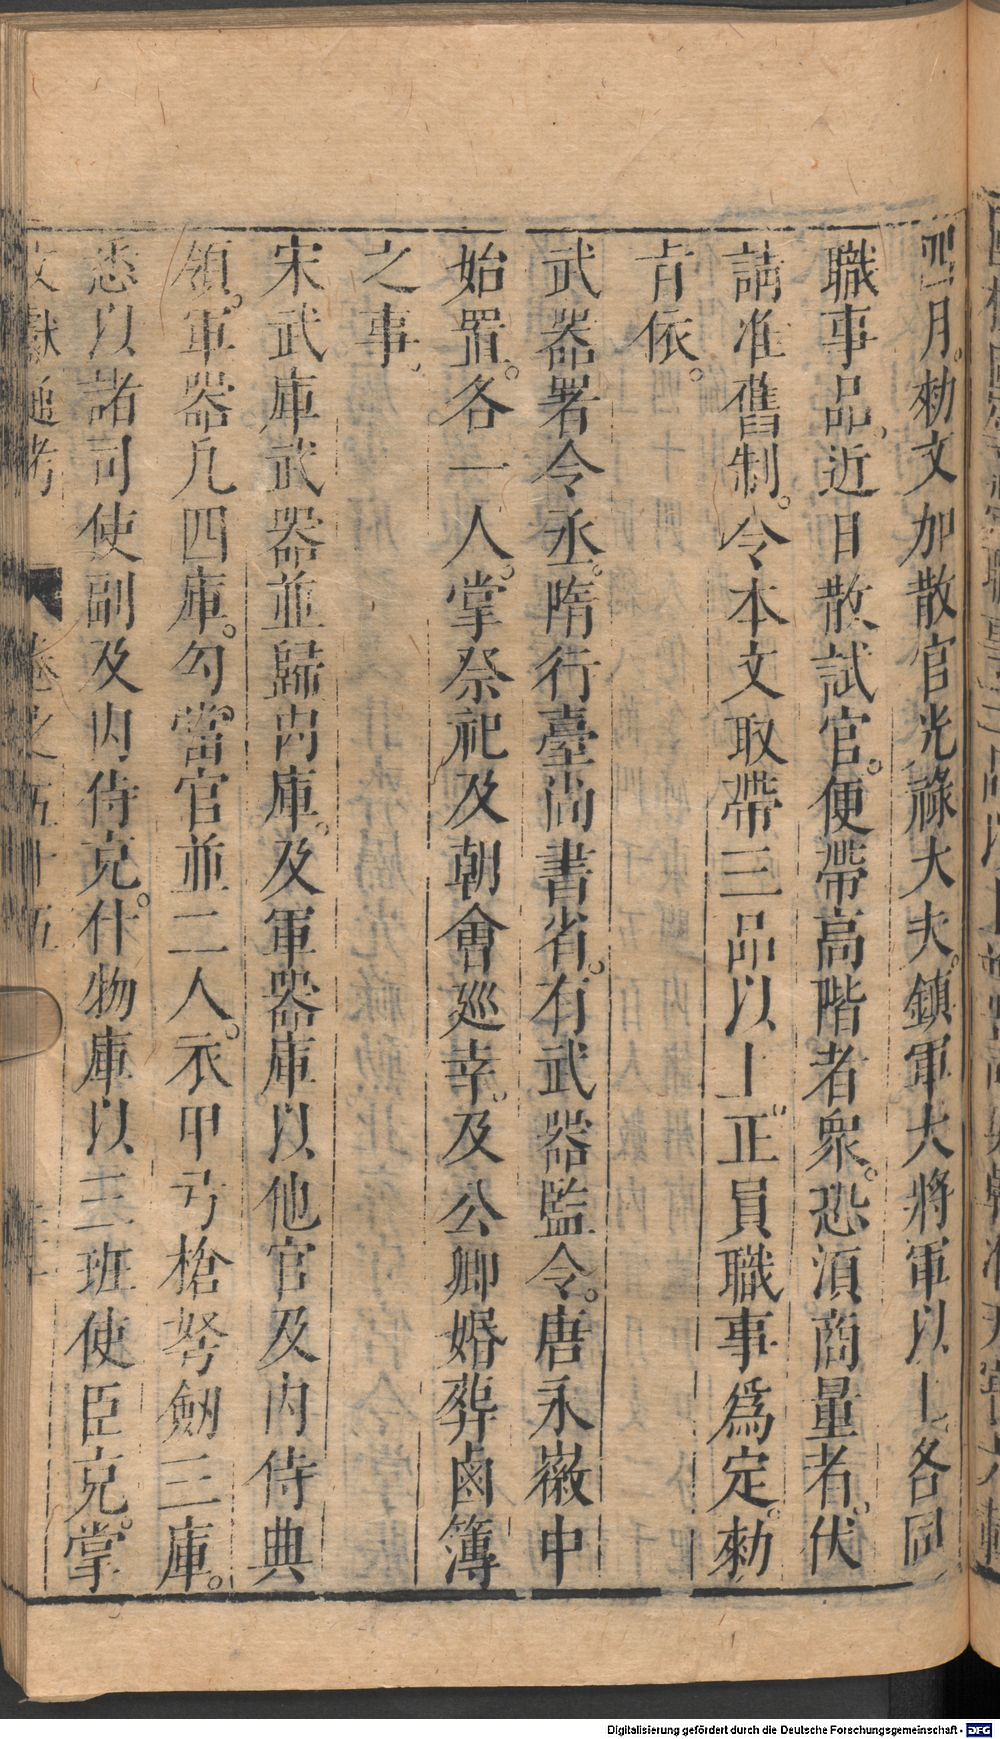 四月。勑文加散官光祿大夫。鎮軍大將軍以上。各同
職事品。近日散試官。便帶高階者衆。恐須商量者。伏
請准舊制。令本文取帶三品以上正員職事爲定。勑
㫖依。
武器署令丞。隋行臺尚書省。有武器監令。唐永徽中
始置。各一人。掌祭祀及朝會巡幸。及公卿婚葬鹵簿
之事。
宋武庫武器並歸內庫。及軍器庫以他官及內侍典
領。軍器凡四庫。勾當官並二人。衣甲弓槍弩劒三庫。
悉以諸司使副及內侍充。什物庫以三班使臣充。掌
文獻通考 卷之五十五
Digitalisierung gefördert durch die Deutsche Forschungsgemeinschaft - DFG